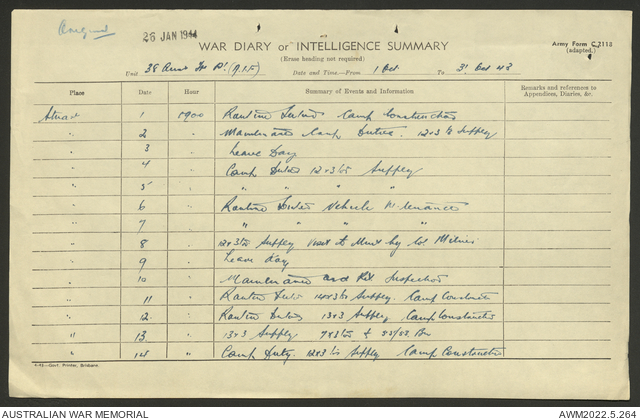 Original
26 JAN 1944
WAR DIARY or INTELLIGENCE SUMMARY
Army Form C.2118
(adapted.)
(Erase heading not required)
Unit 38 (A.I.F) Date and Time—From 1 Oct To 31 Oct 43
Place Date Hour Summary of Events and Information Remarks and references to
Appendices, Diaries, &c.
Stuart 1 1900 Routine Duties Camp Construction
" 2 " Maintenance Camp Duties. 12x3 Supply
" 3 " Leave Day
" 4 " Camp Duties 12x3 Supply
" 5 " " " "
" 6 " Routine Duties Vehicle M-tenance
" 7 " " " "
" 8 " 12x3 Supply Visit to Unit by Col
" 9 " Leave Day
" 10 " Maintenance and Kit Inspection
" 11 " Routine Duties Supply. Camp Construction
" 12 " Routine Duties 13x3 Supply Camp Construction
" 13 " 13x3 Supply
" 14 " Camp Duty. 12x3 Supply Camp Construction
4-43—Govt. Printer, Brisbane.
AUSTRALIAN WAR MEMORIAL
AWM2022.5.264